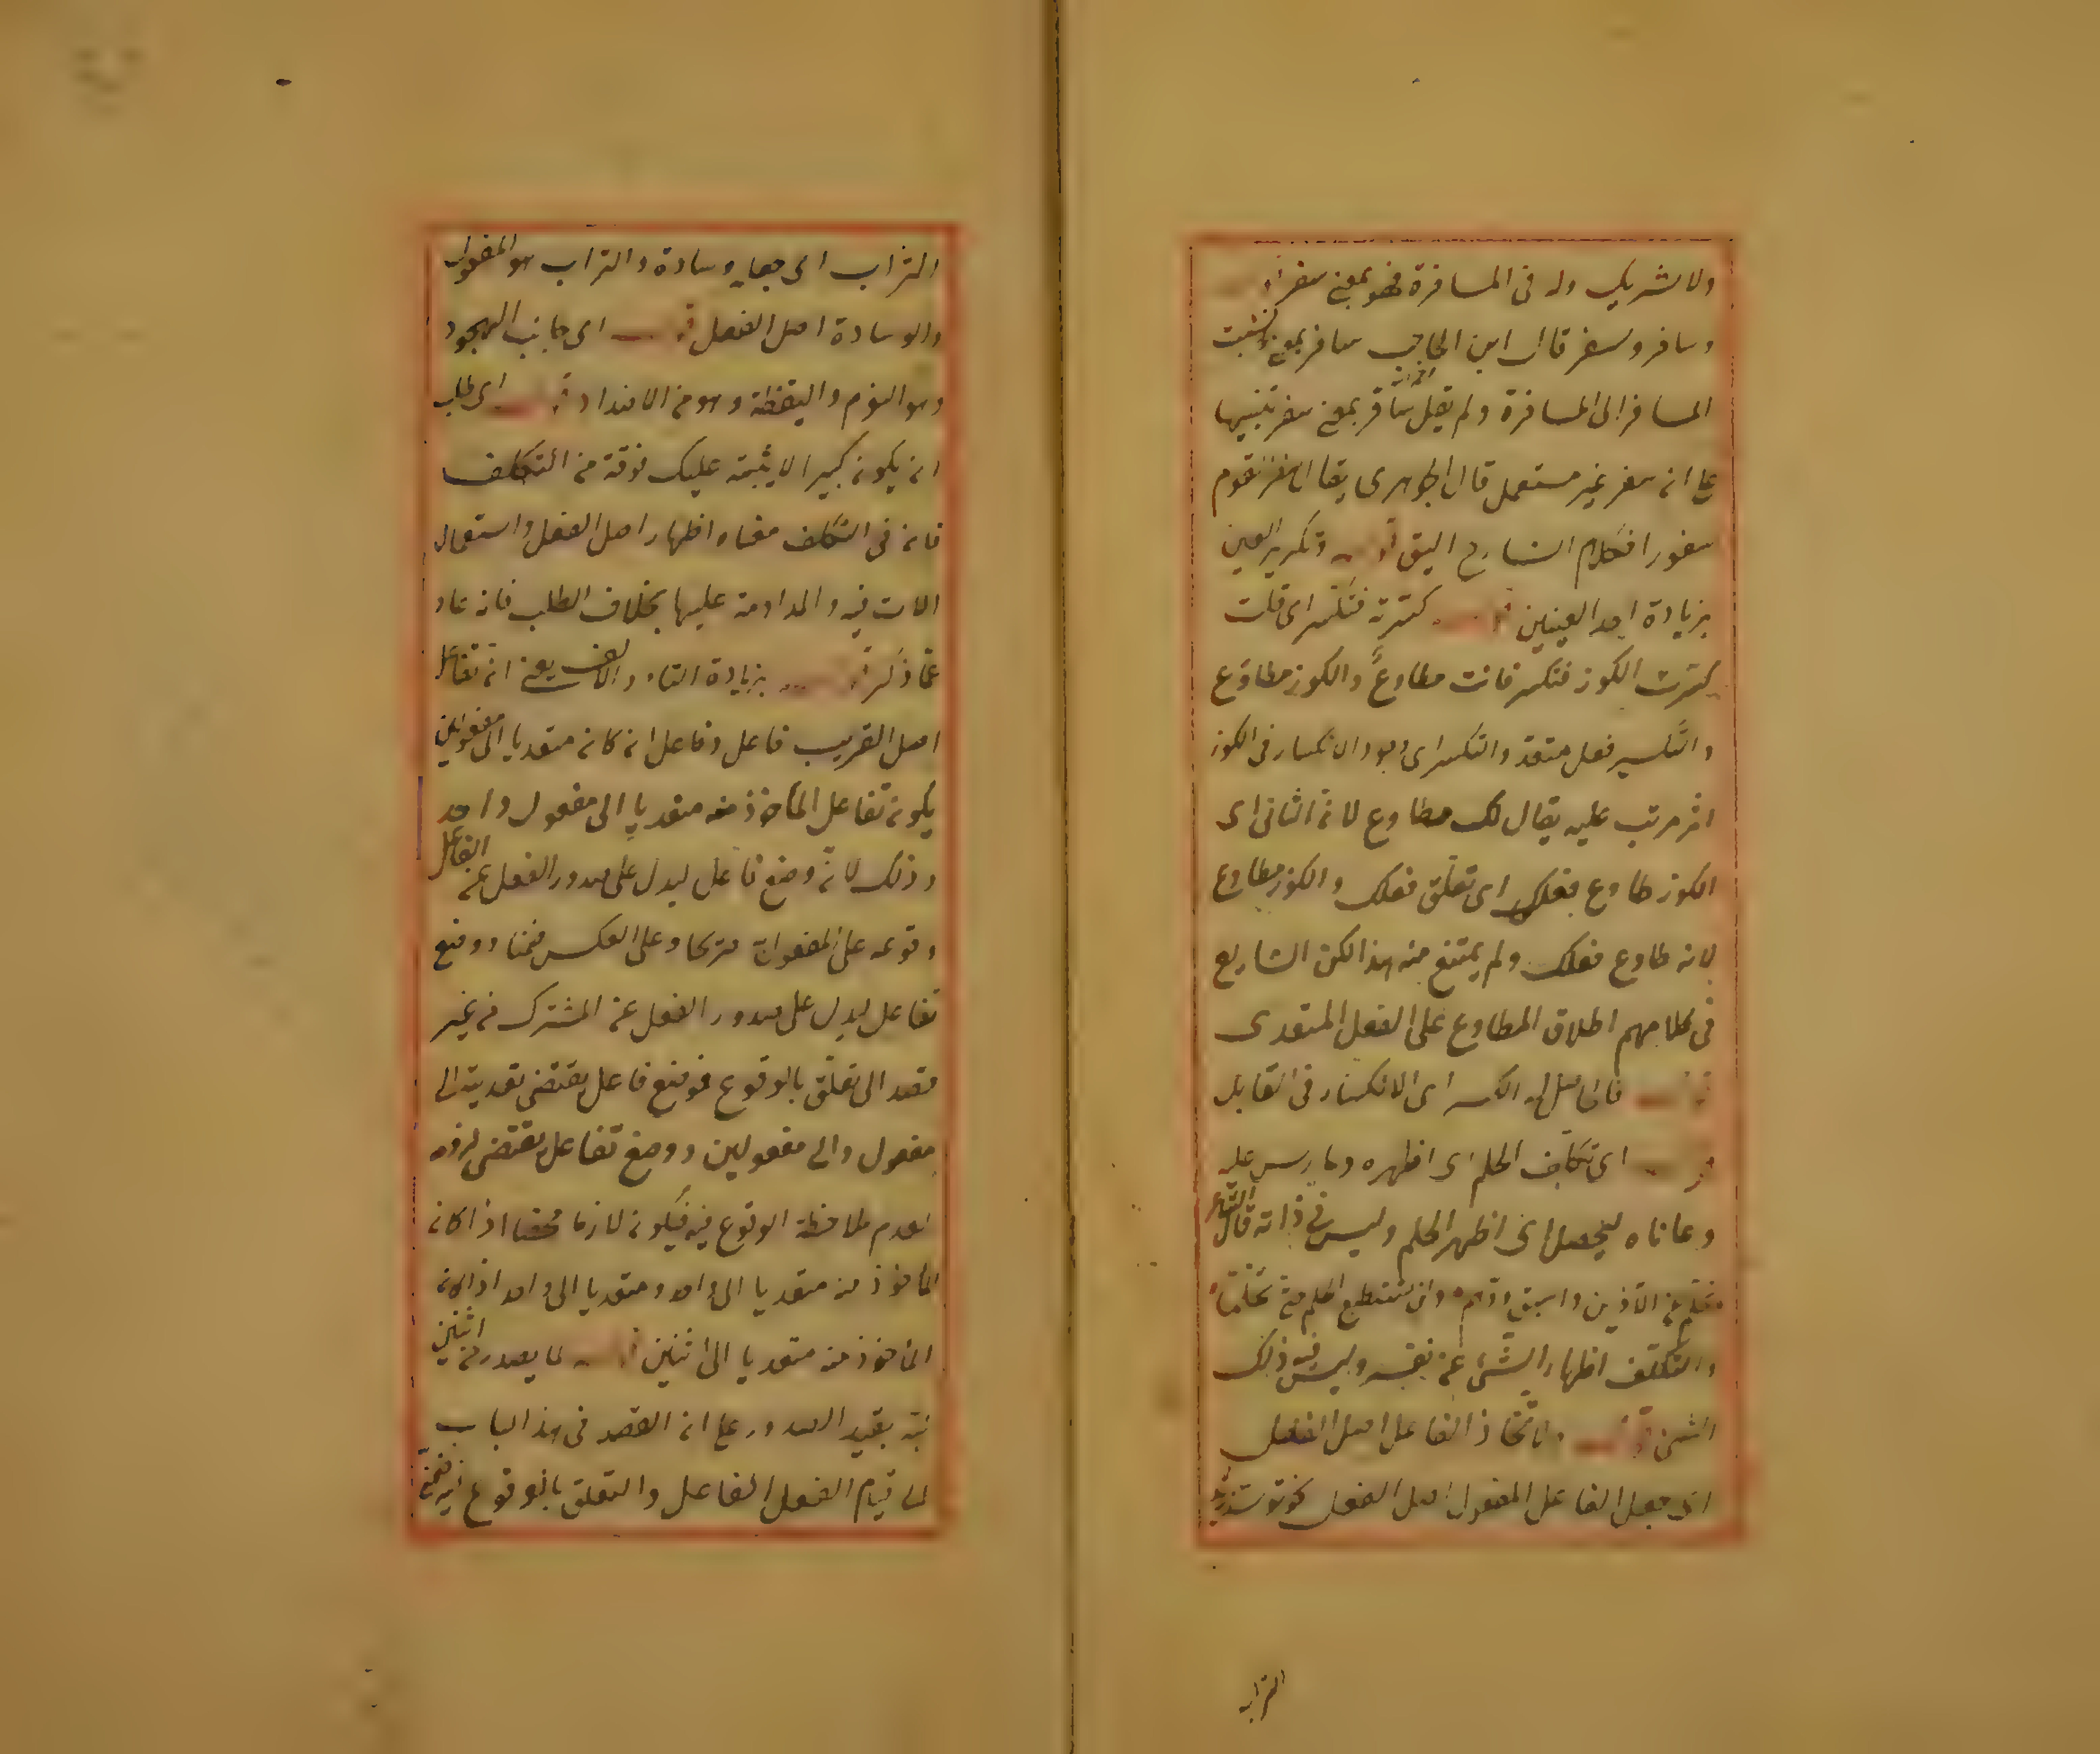 ولا شريك له فى المسافرة فهو بمعنى سفر
وسافر وسفر قال ابن الحاجب سافر بمعنى نسبت
المسافر الى المسافرة ولم يقل سافر بمعنى سفر تنبيها
على ان سفر غير مستعمل قال الجوهرى يقال سفرت اقوم
سفورا فكلام الشارح اليق قوله وتكرير العين
بزيادة احد العينين قوله كسرته فتكسر اى قلت
كسرت الكوز فتكسر فانت مطاوع والكوز مطاوع
والتكسير فعل متعد والتكسر اى وجود الانكسار فى الكوز
اثر مرتب عليه يقال لك مطاوع لان الثانى اى
الكوز طاوع فعلك اى تعلق فعلك والكوز مطاوع
لانه طاوع فعلك ولم يمتنع منه هذا لكن الشايع
فى كلامهم اطلاق المطاوع على الفعل المتعدى
قوله فان اصل الكسر اى الانكسار فى القابل
قوله اى تكلف الحلم اى اظهره ومارس عليه
وعاناه ليحصل اى اظهر الحلم وليس فى ذاته قال الشاعر
تحلم عن الادنين واستبق ودهم ولن تستطيع الحلم حتى تحلما
والتكلف اظهار الشئ عن نفسه وليس فيه ذلك
الشئ قوله ولاتخاذ الفاعل اصل الفعل
اى جعل الفاعل المفعول اصل الفعل نحو توسدت
التراب
التراب اى جعله وسادة والتراب هو المفعول
والوسادة اصل الفعل قوله اى جانب الهجود
وهو النوم واليقظة وهو من الاضداد قوله اى طلب
ان يكون كبيرا لا يشتبه عليك فرقه من التكلف
فان فى التكلف معناه اظهار اصل الفعل واستعمال
الات فيه والمداومة عليها بخلاف الطلب فانه عار
عما ذكر قوله بزيادة التاء والالف يعنى ان تفاعل
اصل القريب فاعل وفاعل ان كان متعديا الى مفعولين
يكون تفاعل المأخوذ منه متعديا الى مفعول واحد
وذلك لانه وضع فاعل ليدل على صدور الفعل عن الفاعل
وقوعه على المفعول صريحا وعلى العكس ضمنا ووضع
تفاعل ليدل على صدور الفعل عن المشترك من غير
قصد الى تعلق بالوقوع فوضع فاعل يقتضى تعديته الى
مفعول والى مفعولين ووضع تفاعل يقتضى لزومه
لعدم ملاحظة الوقوع فيه فيكون لازما محضا اذا كان
المأخوذ منه متعديا الى واحد ومتعديا الى واحد اذا كان
المأخوذ منه متعديا الى اثنين قوله لما يصدر من اثنين
نبه بقيد الصدور على ان القصد فى هذا الباب
الى قيام الفعل الفاعل والتعلق بالوقوع فيه ضمنى